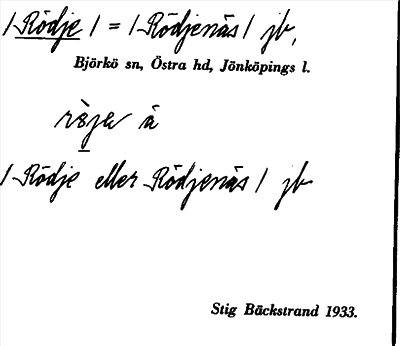 /Rödje/ = /Rödjenäs/ jb,
Björkö sn, Östra hd, Jönköpings l.
å
/Rödje eller Rödjenäs/ jb
Stig Bäckstrand 1933.